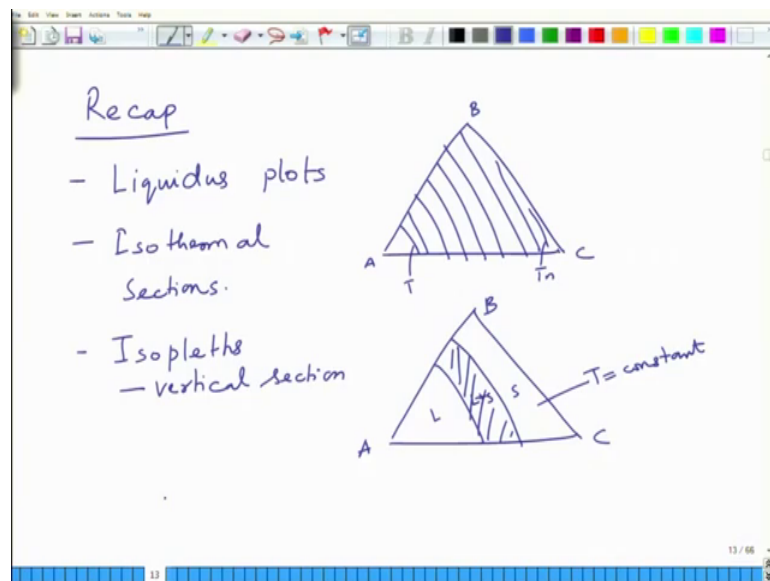 File Edit View Insert Actions Tools Help
B I
Recap
- Liquidus plots
- Isothermal
Sections.
- Isopleths
- vertical section
B
A
C
T
Tn
B
A
C
L
L+S
S
T = constant
13 / 66
13